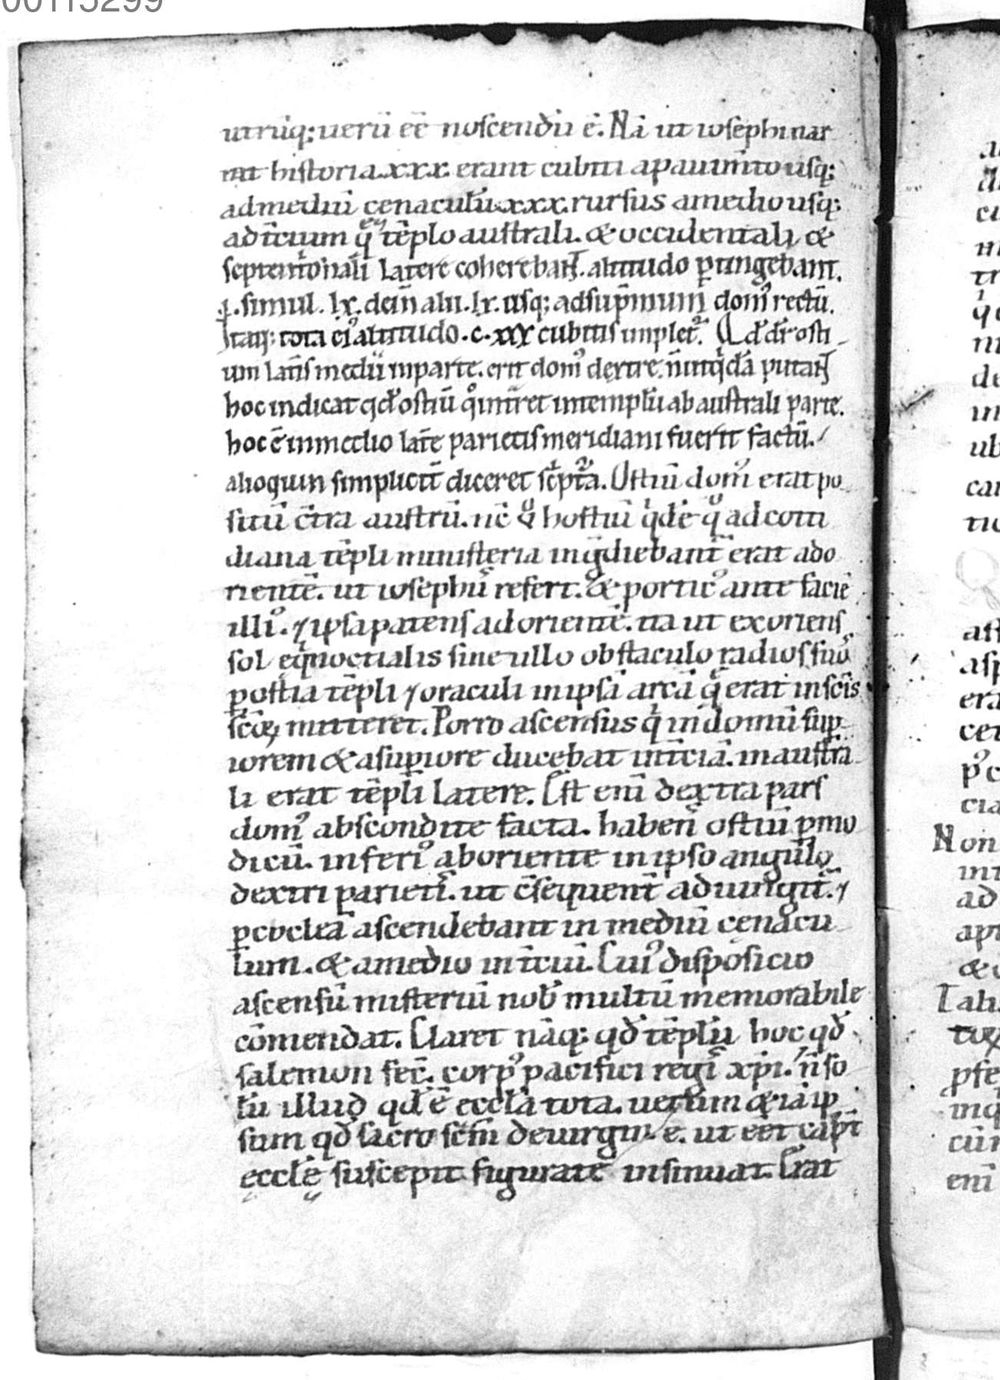 00115299
utrūq; uerū eē noscendū ē. Nā ut iosephi nar
rat historia .xxx. erant cubiti a pauimto usq;
ad mediū cenaculū .xxx. rursus a medio usq;
ad tciũm q̄ tēplo australi. & occidentali &
septentrionali latere coherebant. altitudo ꝑtingebant.
.i. simul. lx. dein alii. lx. usq; ad supmum dom⁹ tectū.
Itaq; tota ei⁹ altitudo .c.xx cubitis implet᷑. Qd dr̄ osti
um lat̄is medii in parte. erit dom⁹ dextre. n̄nuq̄dā putant
hoc indicat qd ostiū q̊ int̄ret in templū ab australi parte.
hoc ē in medio lat̄e parietis meridiani fuerit factū.
alioquin simplicit̄ diceret sc̄pt᷑a. Ostiū dom⁹ erat po
situ c̄tra austrū. nc̄ hostiū qd ē q̊ ad coti
diana tēpli ministeria ing̃diebant᷑ erat ad o
rientē. ut iosephus refert. & portic⁹ ante faciē
illi⁹. ⁊ ipsa patens ad orientē. ita ut exoriens
sol eq̄noctialis sine ullo obstaculo radios suo
ꝑ ostia tēpli ⁊ oraculi in ipsā arcā q̄ erat in sc̄is
sc̄oꝝ mitteret. Porro ascensus q̄ in domū sup
iorem & a supiore ducebat in tciā. in austra
li erat tēpli latere. Est enī dextra pars
dom⁹ abscondite facta. habens ostiū pmo
dicū. inferi⁹ ab oriente in ipso angulo
dextri parietis. ut c̄sequent̄ adiungit᷑. ⁊
ꝑ cocleā ascendebant in mediū cenacu
lum. & a medio in tciū. Cui⁹ disposicio
ascensū misteriū nob̄ multū memorabile
cōmendat. Claret nāq; qd tēplū hoc qd
salemon fec̄. corp⁹ pacifici regis xpi. n̄ so
lū illud qd ē eccla tota. uerum & iā ip
sum qd sacro sc̄m de uirgine. ut eēt capt̄
eccle suscepit figurate insinuat. Erat